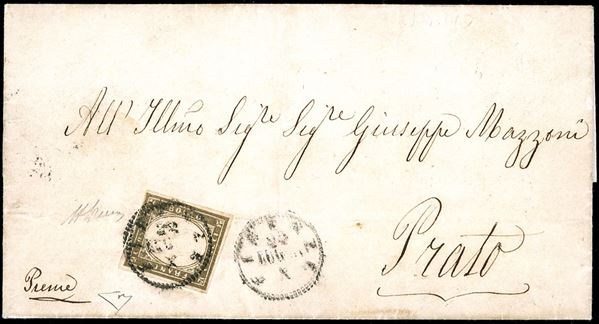 All' Illmo Sigre Sigre Giuseppe Mazzoni
Prato
Preme
FIRENZE